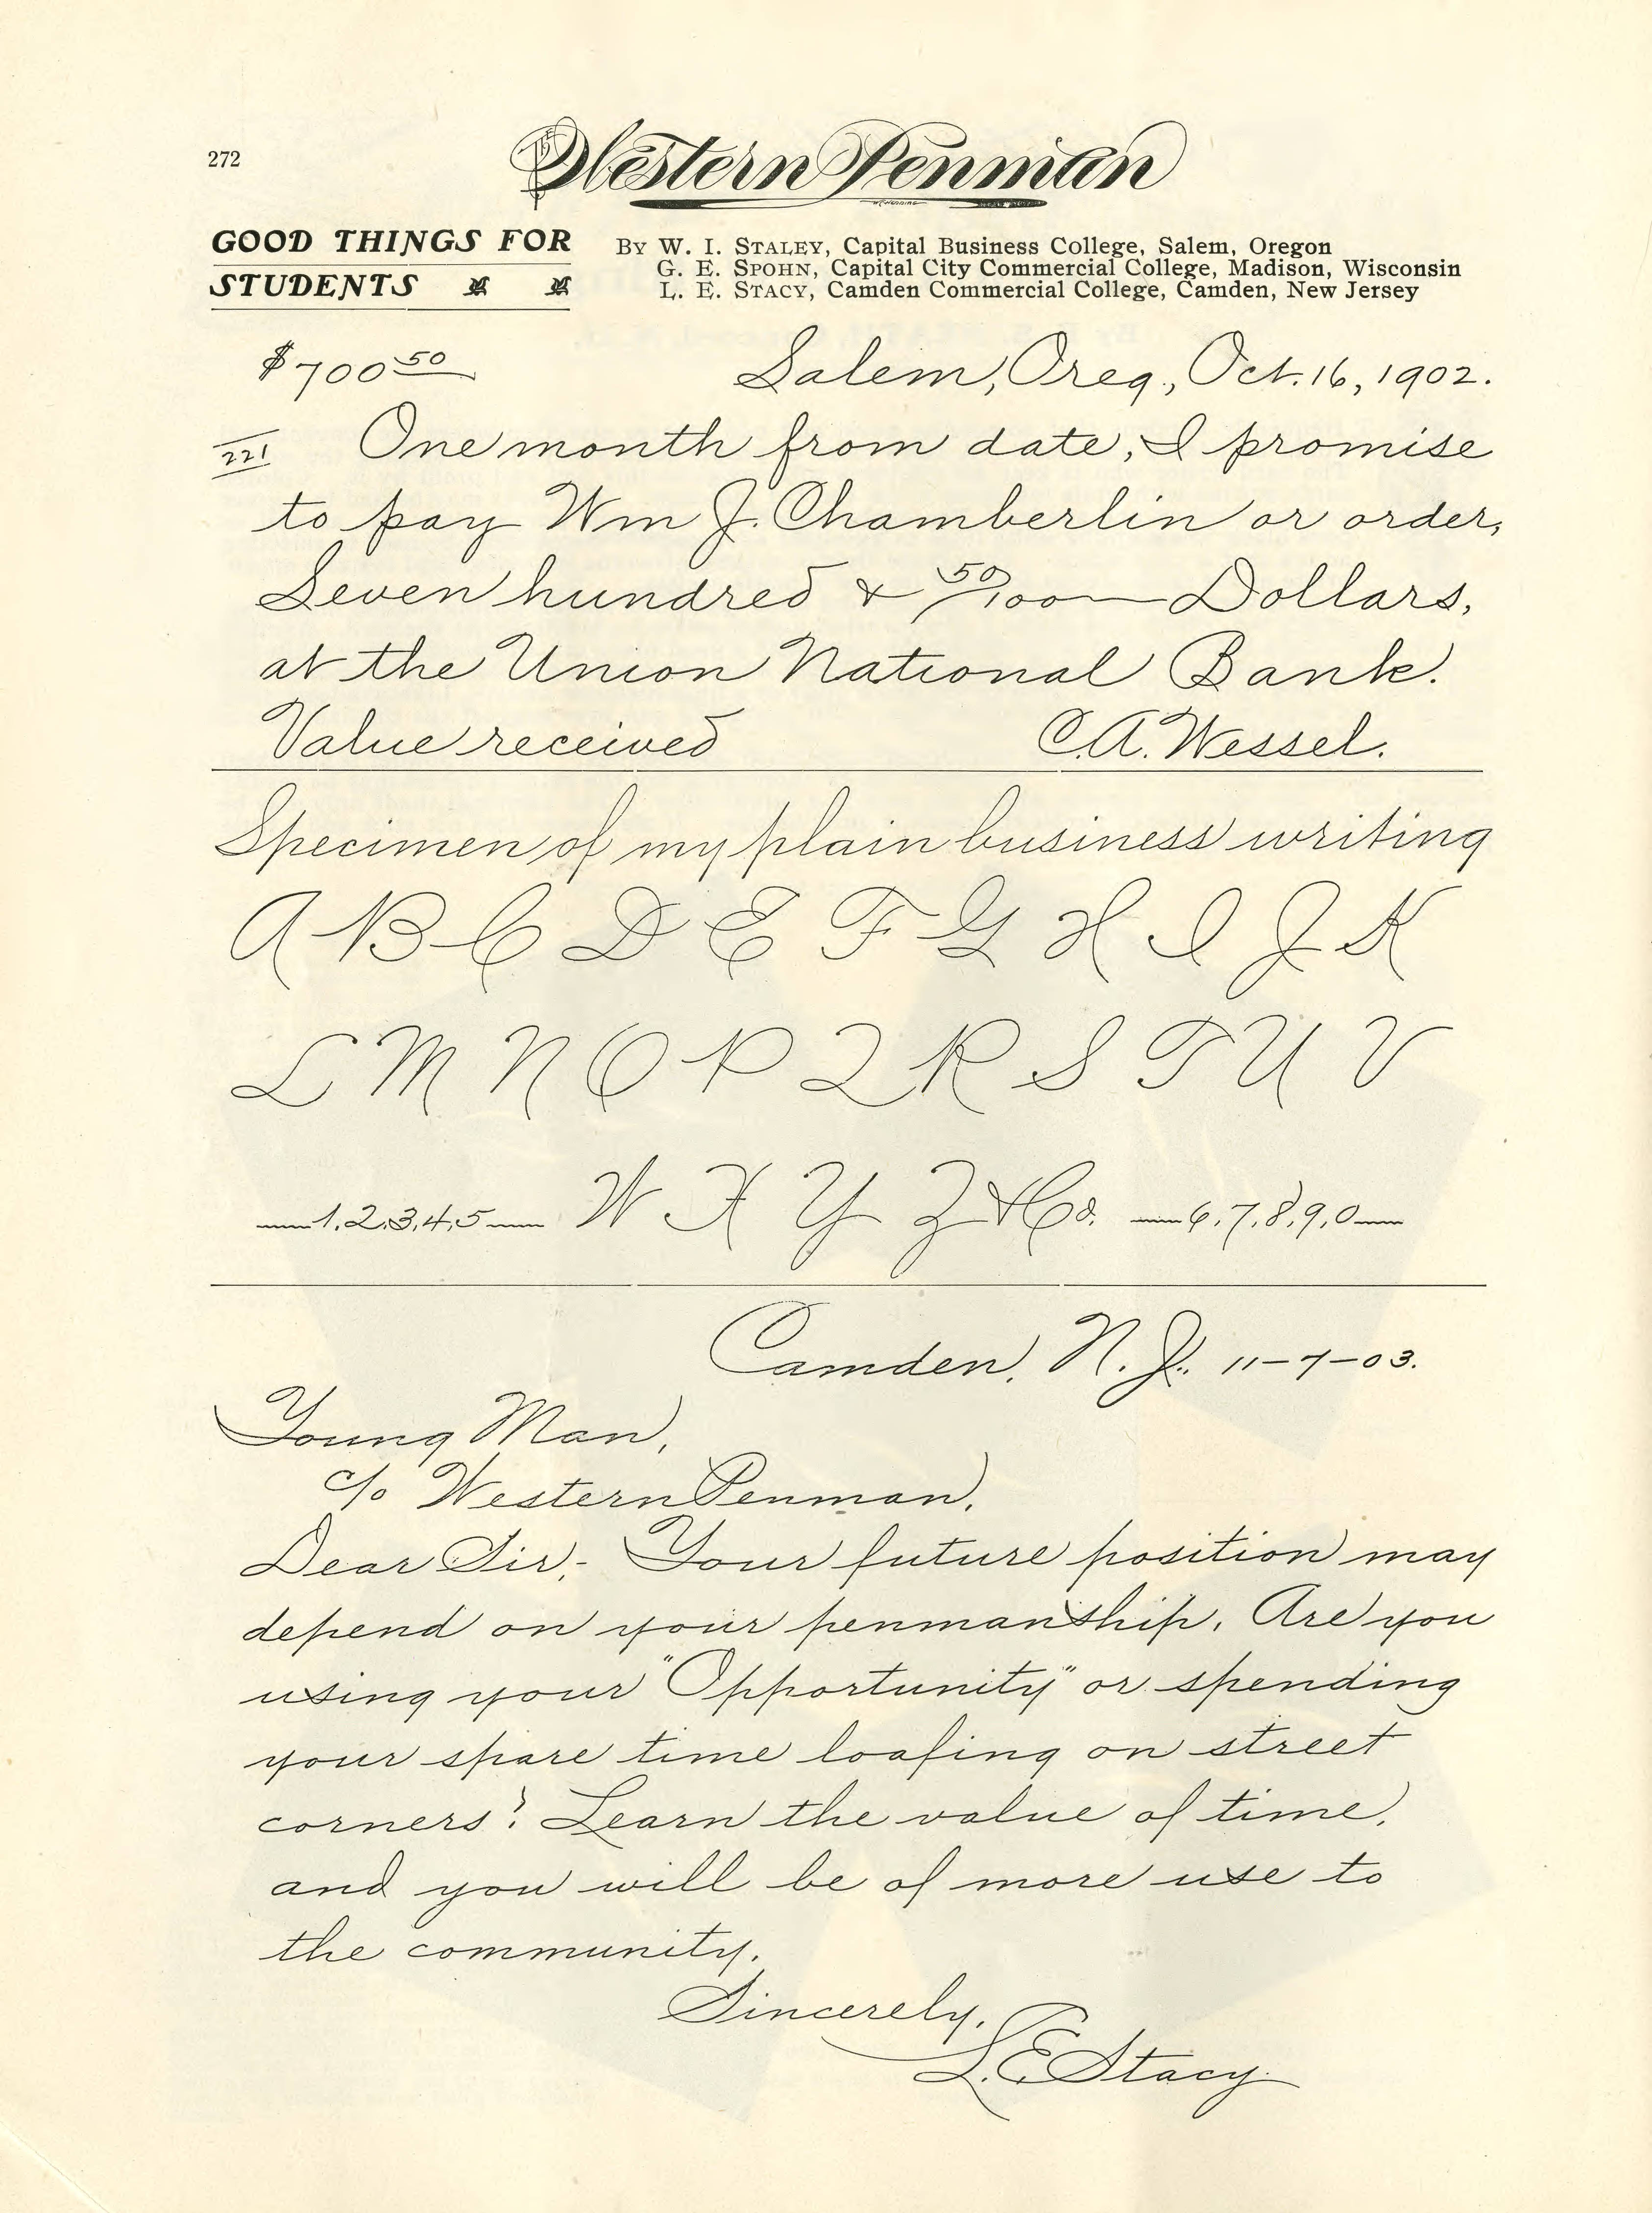 272
Western Penman
GOOD THINGS FOR
STUDENTS
BY W. I. STALEY, Capital Business College, Salem, Oregon
G. E. SPOHN, Capital City Commercial College, Madison, Wisconsin
L. E. STACY, Camden Commercial College, Camden, New Jersey
$700 50 Salem, Oreg., Oct. 16, 1902.
221 One month from date, I promise
to pay Wm J. Chamberlin or order,
Seven hundred & 50/100 Dollars,
at the Union National Bank.
Value received C. A. Wessel.
Specimen of my plain business writing
A B C D E F G H I J K
L M N O P Q R S T U V
1,2,3,4,5 W X Y Z & Co. 6,7,8,9,0
Camden, N. J., 11-7-03.
Young Man,
c/o Western Penman,
Dear Sir;- Your future position may
depend on your penmanship. Are you
using your "Opportunity" or spending
your spare time loafing on street
corners? Learn the value of time,
and you will be of more use to
the community.
Sincerely,
L. E. Stacy.